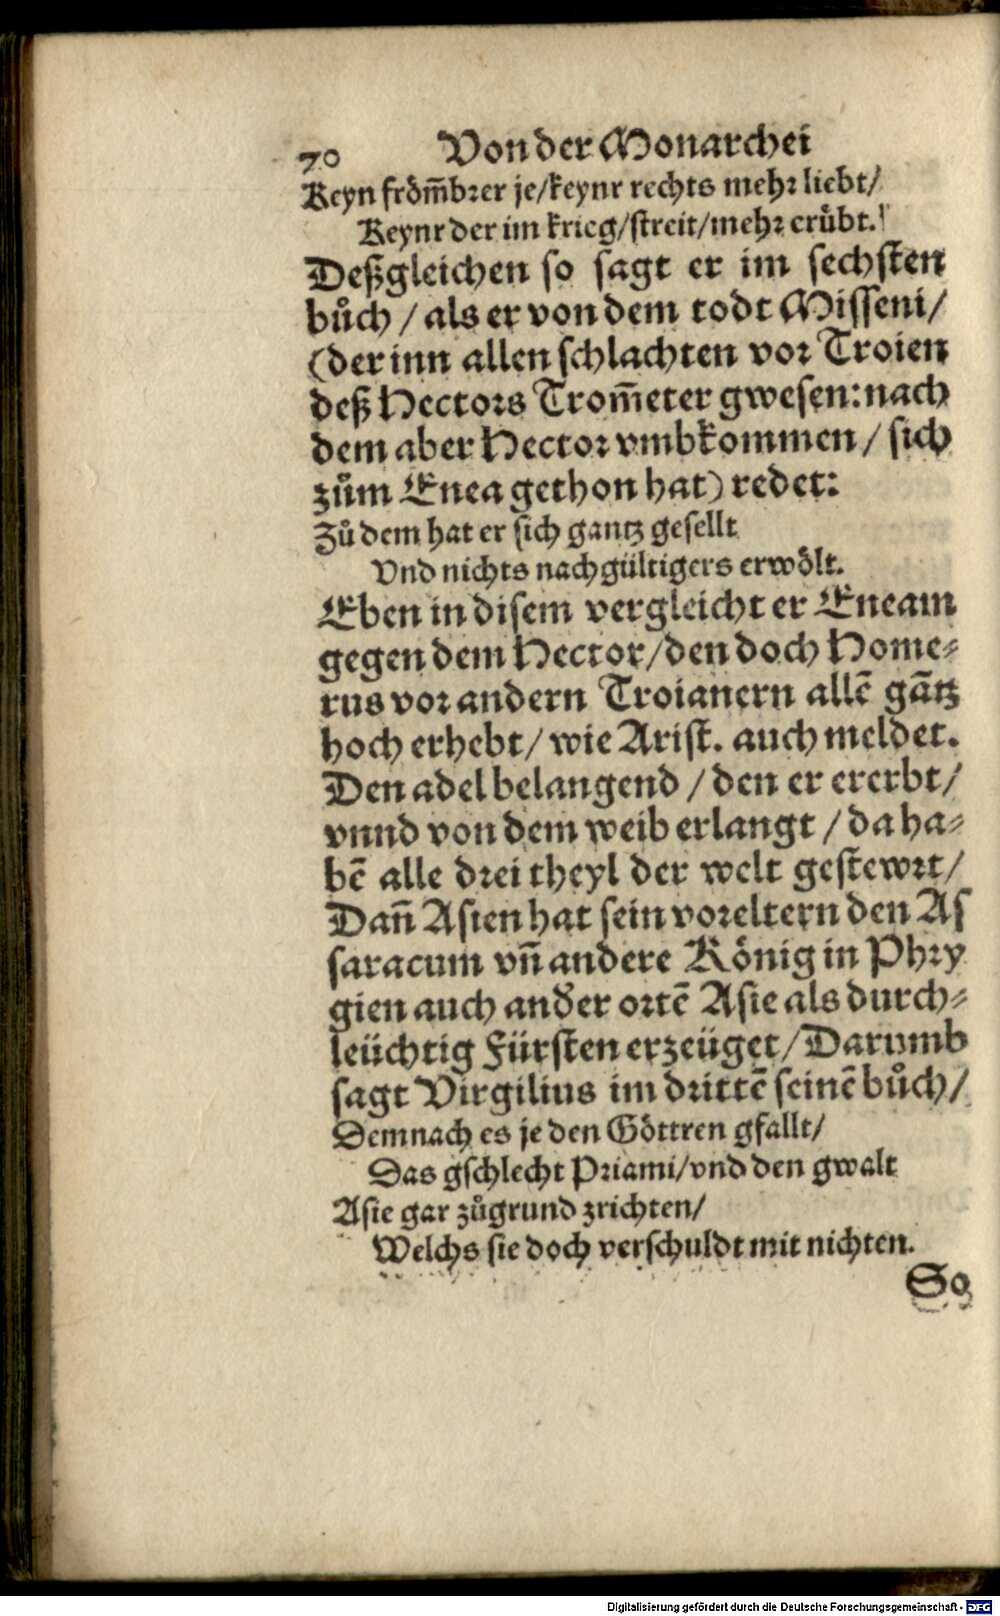 70 Von der Monarchei
Keyn fröm̃brer je/keynr rechts mehr liebt/
Keynr der im krieg/streit/mehr erůbt.
Deßgleichen so sagt er im sechsten
bůch / als er von dem todt Misseni/
(der inn allen schlachten vor Troien
deß Hectors Trom̃eter gwesen: nach
dem aber Hector vmbkommen / sich
zům Enea gethon hat) redet:
Zů dem hat er sich gantz gesellt
Vnd nichts nachgültigers erwölt.
Eben in disem vergleicht er Eneam
gegen dem Hector/den doch Home⸗
rus vor andern Troianern allẽ gãtz
hoch erhebt/ wie Arist. auch meldet.
Den adel belangend / den er ererbt/
vnnd von dem weib erlangt / da ha⸗
bẽ alle drei theyl der welt gestewrt/
Dañ Asien hat sein voreltern den As
saracum vñ andere König in Phry
gien auch ander ortẽ Asie als durch⸗
leüchtig Fürsten erzeüget/Darumb
sagt Virgilius im drittẽ seinẽ bůch/
Demnach es je den Göttren gfallt/
Das gschlecht Priami/vnd den gwalt
Asie gar zůgrund zrichten/
Welchs sie doch verschuldt mit nichten.
So
Digitalisierung gefördert durch die Deutsche Forschungsgemeinschaft - DFG